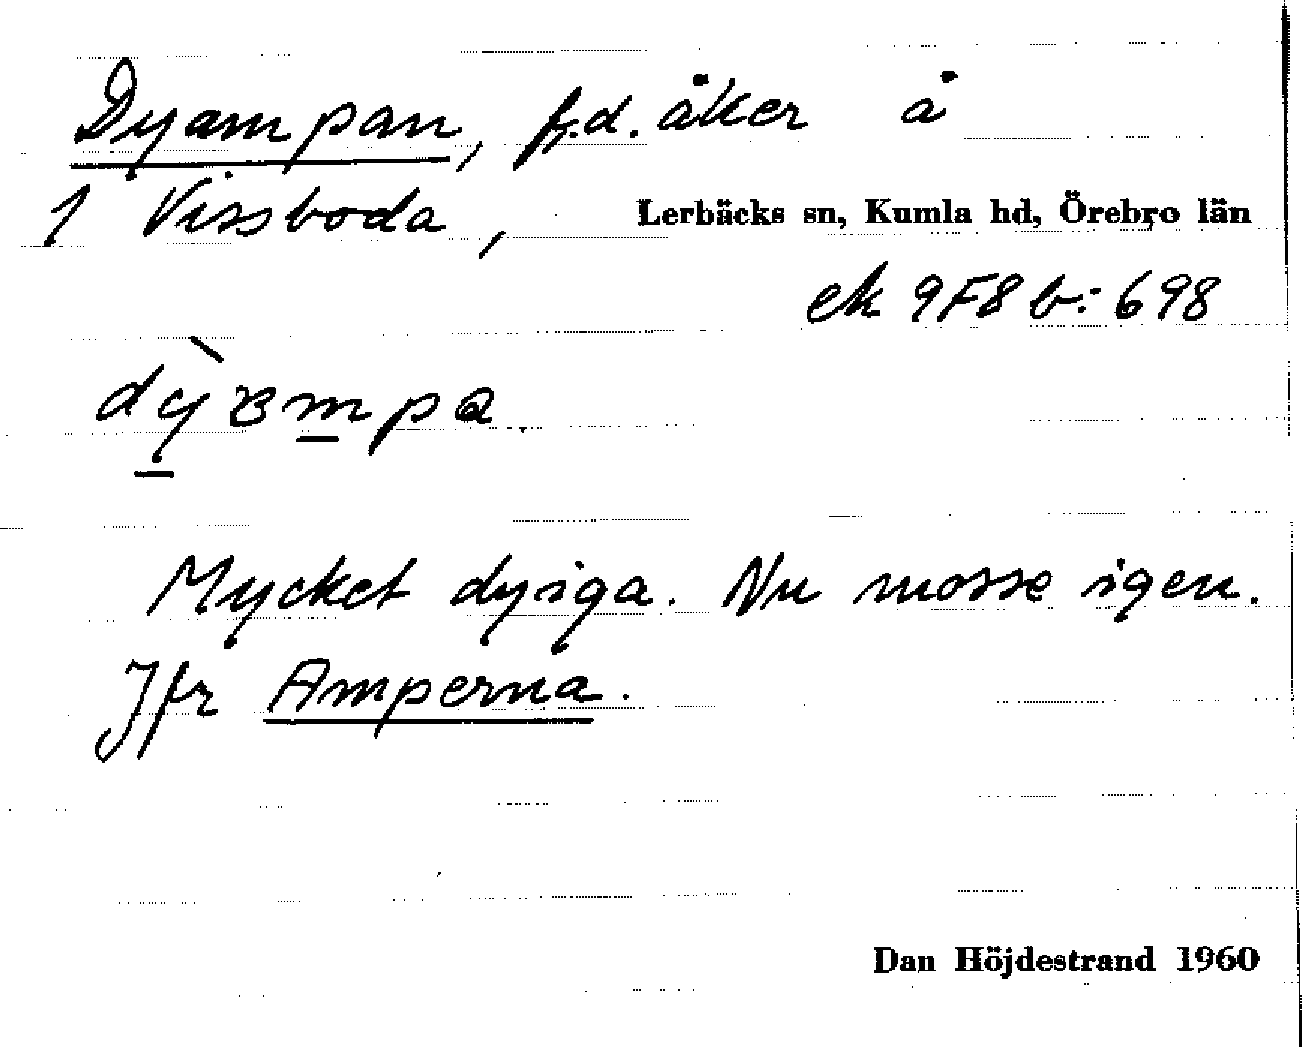 Dyampan, f.d. åker å
1 Vissboda, Lerbäcks sn, Kumla hd, Örebro län
ek 9F8b:698
Mycket dyiga. Nu mosse igen.
Jfr Amperna.
Dan Höjdestrand 1960